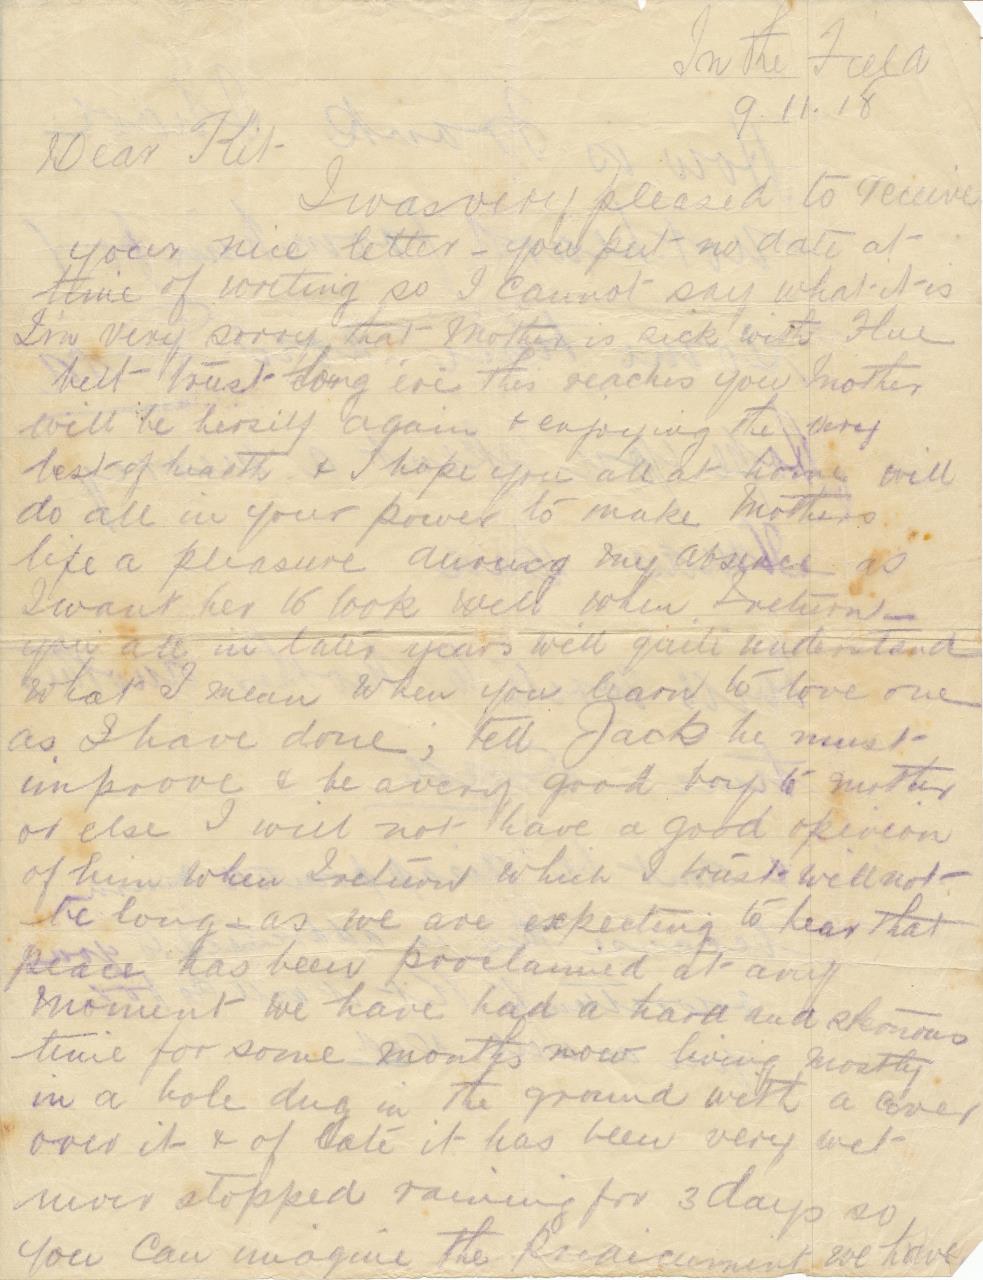 In the Field
9.11.18
Dear Kit-
I was very pleased to receive
your nice letter - you put no date at
time of writing so I cannot say what it is
I'm very sorry that Mother is sick with Flue
but trust long ere this reaches you Mother
will be herself again & enjoying the very
best of health & I hope you all at home will
do all in your power to make Mothers
life a pleasure during my absence as
I want her to look well when I return -
you all in later years will quite understand
what I mean when you learn to love one
as I have done, tell Jack he must
improve & be a very good boy to mother
or else I will not have a good opinion
of him when I return which I trust will not
be long - as we are expecting to hear that
peace has been proclaimed at any
moment we have had a hard and
time for some months now living mostly
in a hole dug in the ground with a cover
over it & of late it has been very wet
never stopped raining for 3 days so
you can imagine the we have